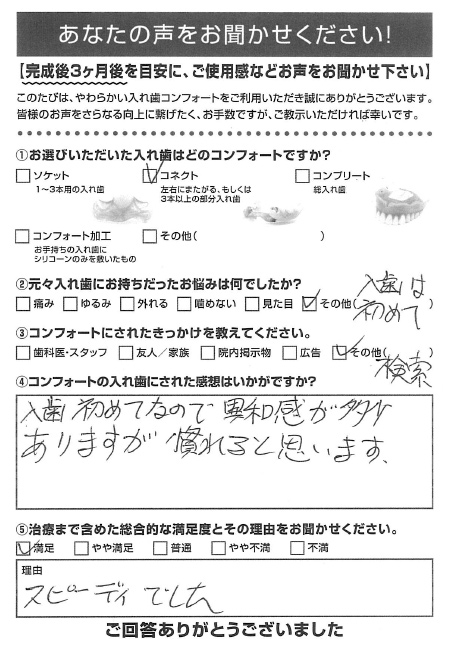 あなたの声をお聞かせください!
【完成後3ヶ月後を目安に、ご使用感などお声をお聞かせ下さい】
このたびは、やわらかい入れ歯コンフォートをご利用いただき誠にありがとうございます。
皆様のお声をさらなる向上に繋げたく、お手数ですが、ご教示いただければ幸いです。
①お選びいただいた入れ歯はどのコンフォートですか?
□ソケット ☑コネクト □コンプリート
1〜3本用の入れ歯 左右にまたがる、もしくは 総入れ歯
3本以上の部分入れ歯
□コンフォート加工 □その他( )
お手持ちの入れ歯に
シリコーンのみを敷いたもの
②元々入れ歯にお持ちだったお悩みは何でしたか?
□痛み □ゆるみ □外れる □噛めない □見た目 ☑その他(入歯は初めて)
③コンフォートにされたきっかけを教えてください。
□歯科医・スタッフ □友人/家族 □院内掲示物 □広告 ☑その他(検索)
④コンフォートの入れ歯にされた感想はいかがですか?
入歯初めてなので異和感が多少
ありますが慣れると思います、
⑤治療まで含めた総合的な満足度とその理由をお聞かせください。
☑満足 □やや満足 □普通 □やや不満 □不満
理由
スピーディでした
ご回答ありがとうございました